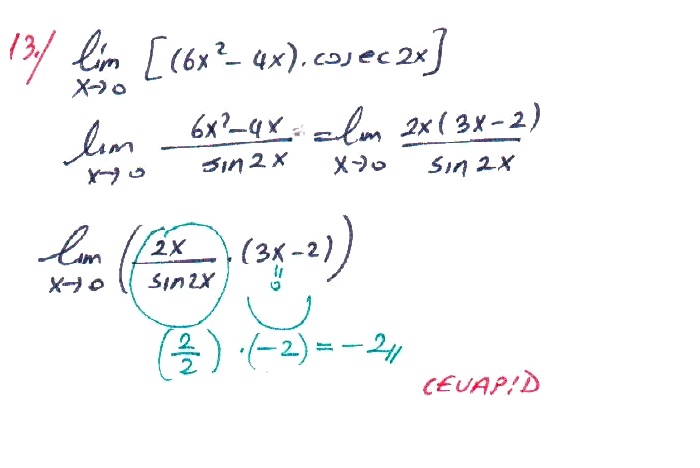 13./ lim x→0 [(6x² - 4x). cosec 2x]
lim x→0 6x²-4x / sin 2x = lim x→0 2x(3x-2) / sin 2x
lim x→0 (2x / sin 2x . (3x-2))
0
(2/2) . (-2) = -2//
CEVAP: D